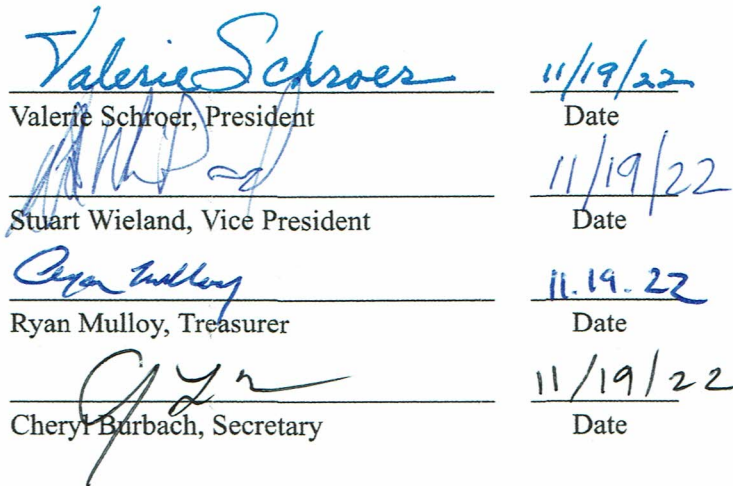 Valerie Schroer 11/19/22
Valerie Schroer, President Date
11/19/22
Stuart Wieland, Vice President Date
Ryan Mulloy 11.19.22
Ryan Mulloy, Treasurer Date
11/19/22
Cheryl Burbach, Secretary Date